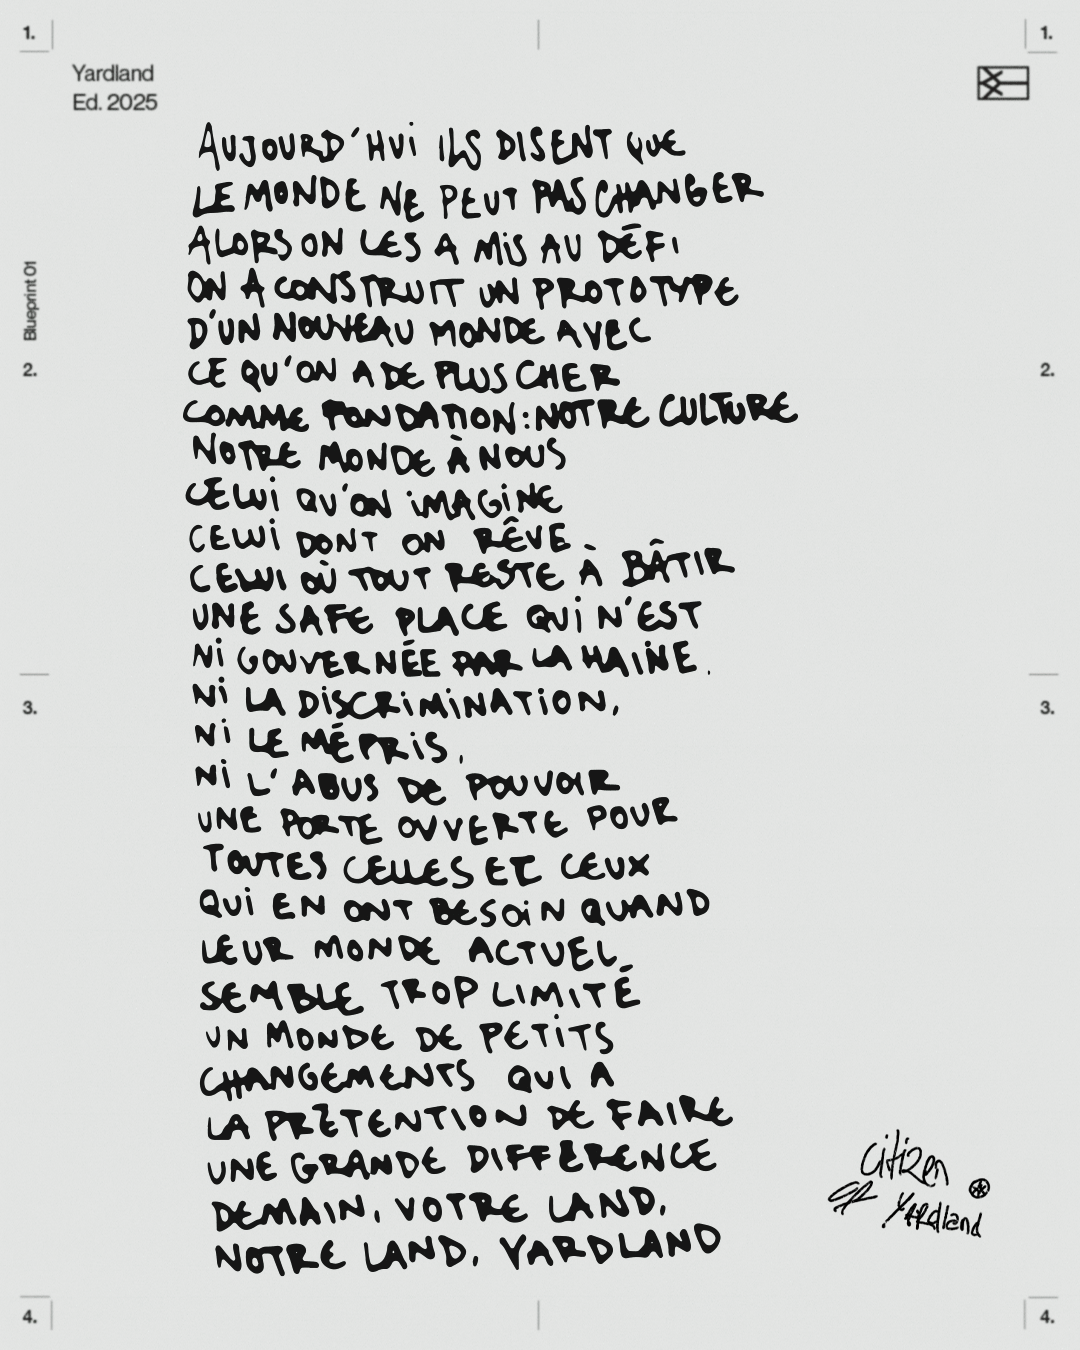 1.
1.
Yardland
Ed. 2025
AUJOURD'HUI ILS DISENT QUE
LE MONDE NE PEUT PAS CHANGER
ALORS ON LES A MIS AU DÉFI
ON A CONSTRUIT UN PROTOTYPE
D'UN NOUVEAU MONDE AVEC
CE QU'ON A DE PLUS CHER
COMME FONDATION: NOTRE CULTURE
NOTRE MONDE À NOUS
CELUI QU'ON IMAGINE
CELUI DONT ON RÊVE
CELUI OÙ TOUT RESTE À BÂTIR
UNE SAFE PLACE QUI N'EST
NI GOUVERNÉE PAR LA HAINE.
NI LA DISCRIMINATION,
NI LE MÉPRIS,
NI L'ABUS DE POUVOIR
UNE PORTE OUVERTE POUR
TOUTES CELLES ET CEUX
QUI EN ONT BESOIN QUAND
LEUR MONDE ACTUEL
SEMBLE TROP LIMITÉ
UN MONDE DE PETITS
CHANGEMENTS QUI A
LA PRÉTENTION DE FAIRE
UNE GRANDE DIFFÉRENCE
DEMAIN, VOTRE LAND,
NOTRE LAND, YARDLAND
Blueprint 01
2.
2.
3.
3.
Citizen
Yardland
4.
4.